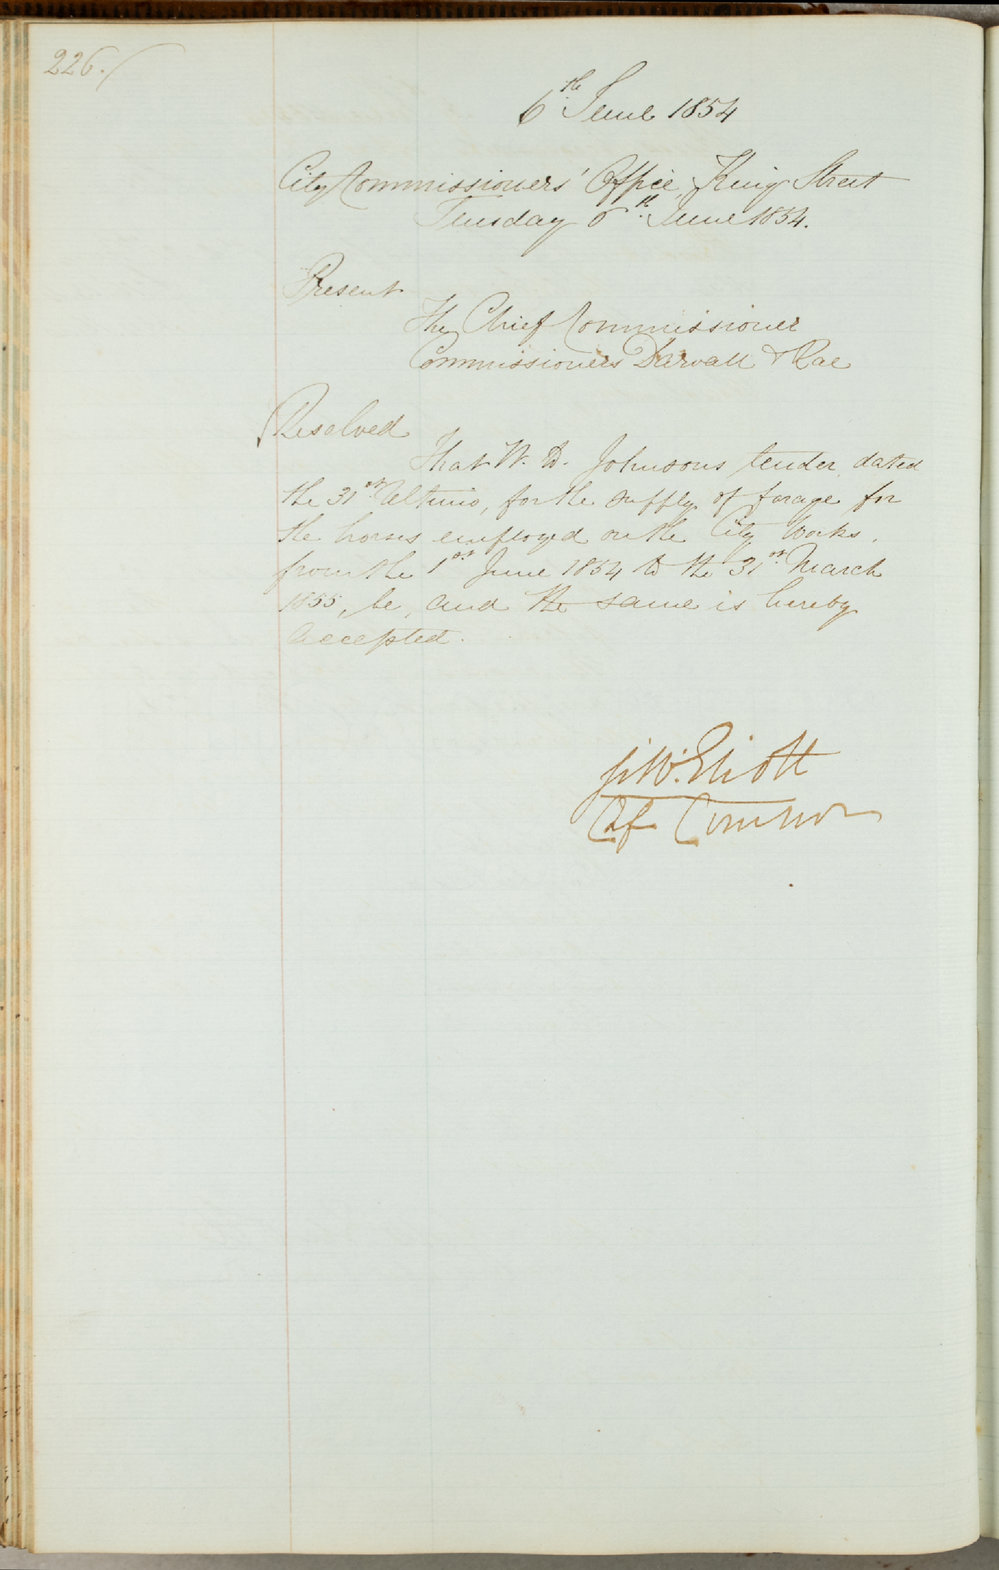 226.
6th June 1854
City Commissioners' Office, King Street
Tuesday 6th June 1854.
Present
The Chief Commissioner
Commissioners Darvall & Rae
Resolved
That W. D. Johnsons tender dated
the 31st Ultimo, for the supply of forage for
the horses employed on the City Works.
from the 1st June 1854 to the 31st March
1855, be, and the same is hereby
accepted.
G. W. Eliott
Cf Commr